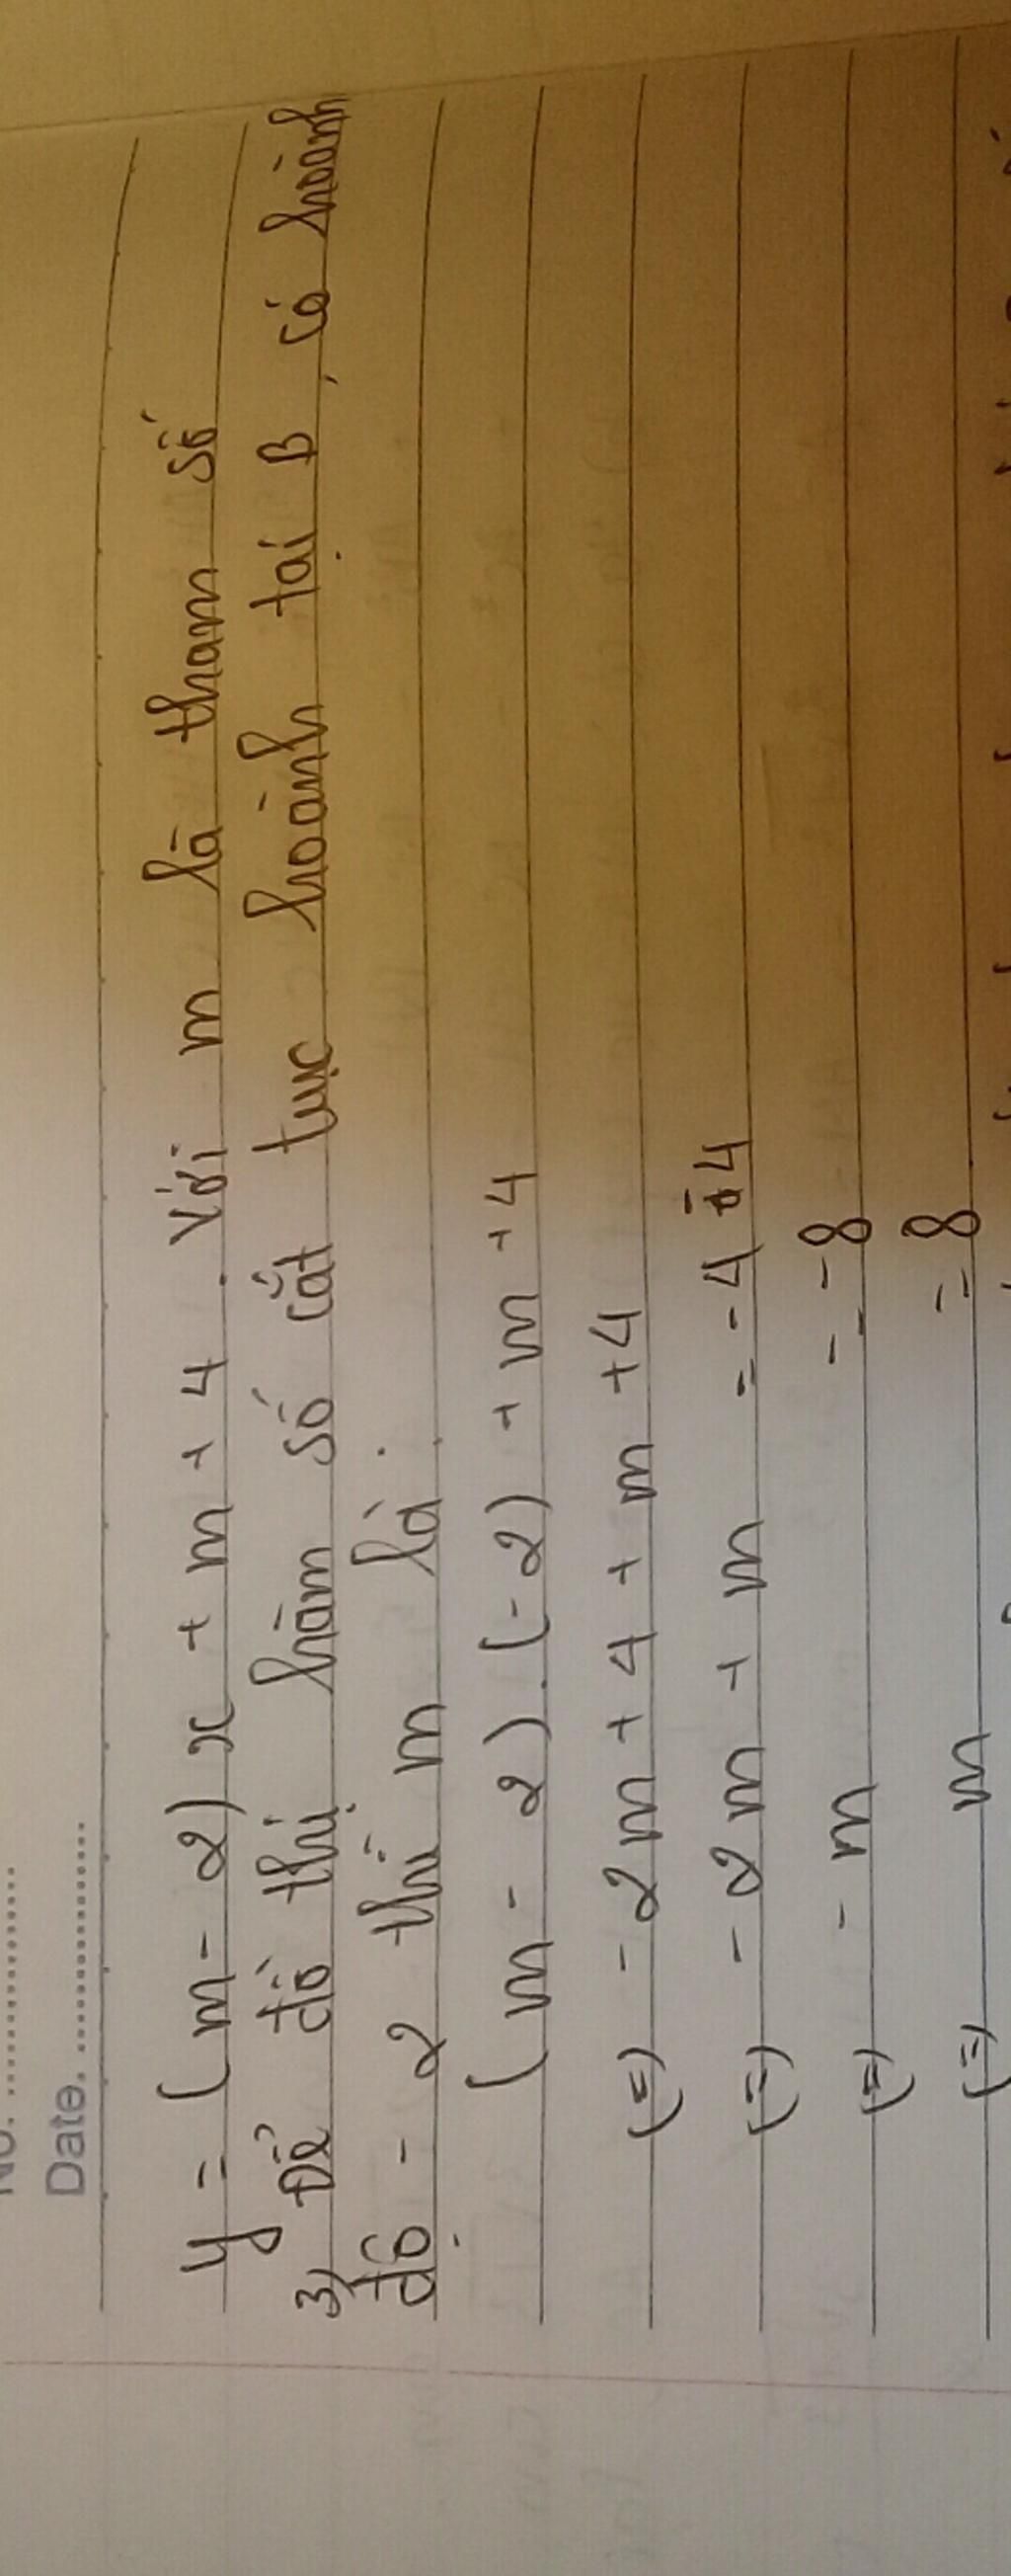 Date. ......................
y = (m - 2) x + m + 4 . Với m là tham số
3) Để đồ thị hàm số cắt trục hoành tại B có hoành
độ - 2 thì m là :
(m - 2) . (-2) + m + 4
(=) - 2m + 4 + m + 4
(=) - 2m + m = - 4 - 4
(=) - m = - 8
(=) m = 8